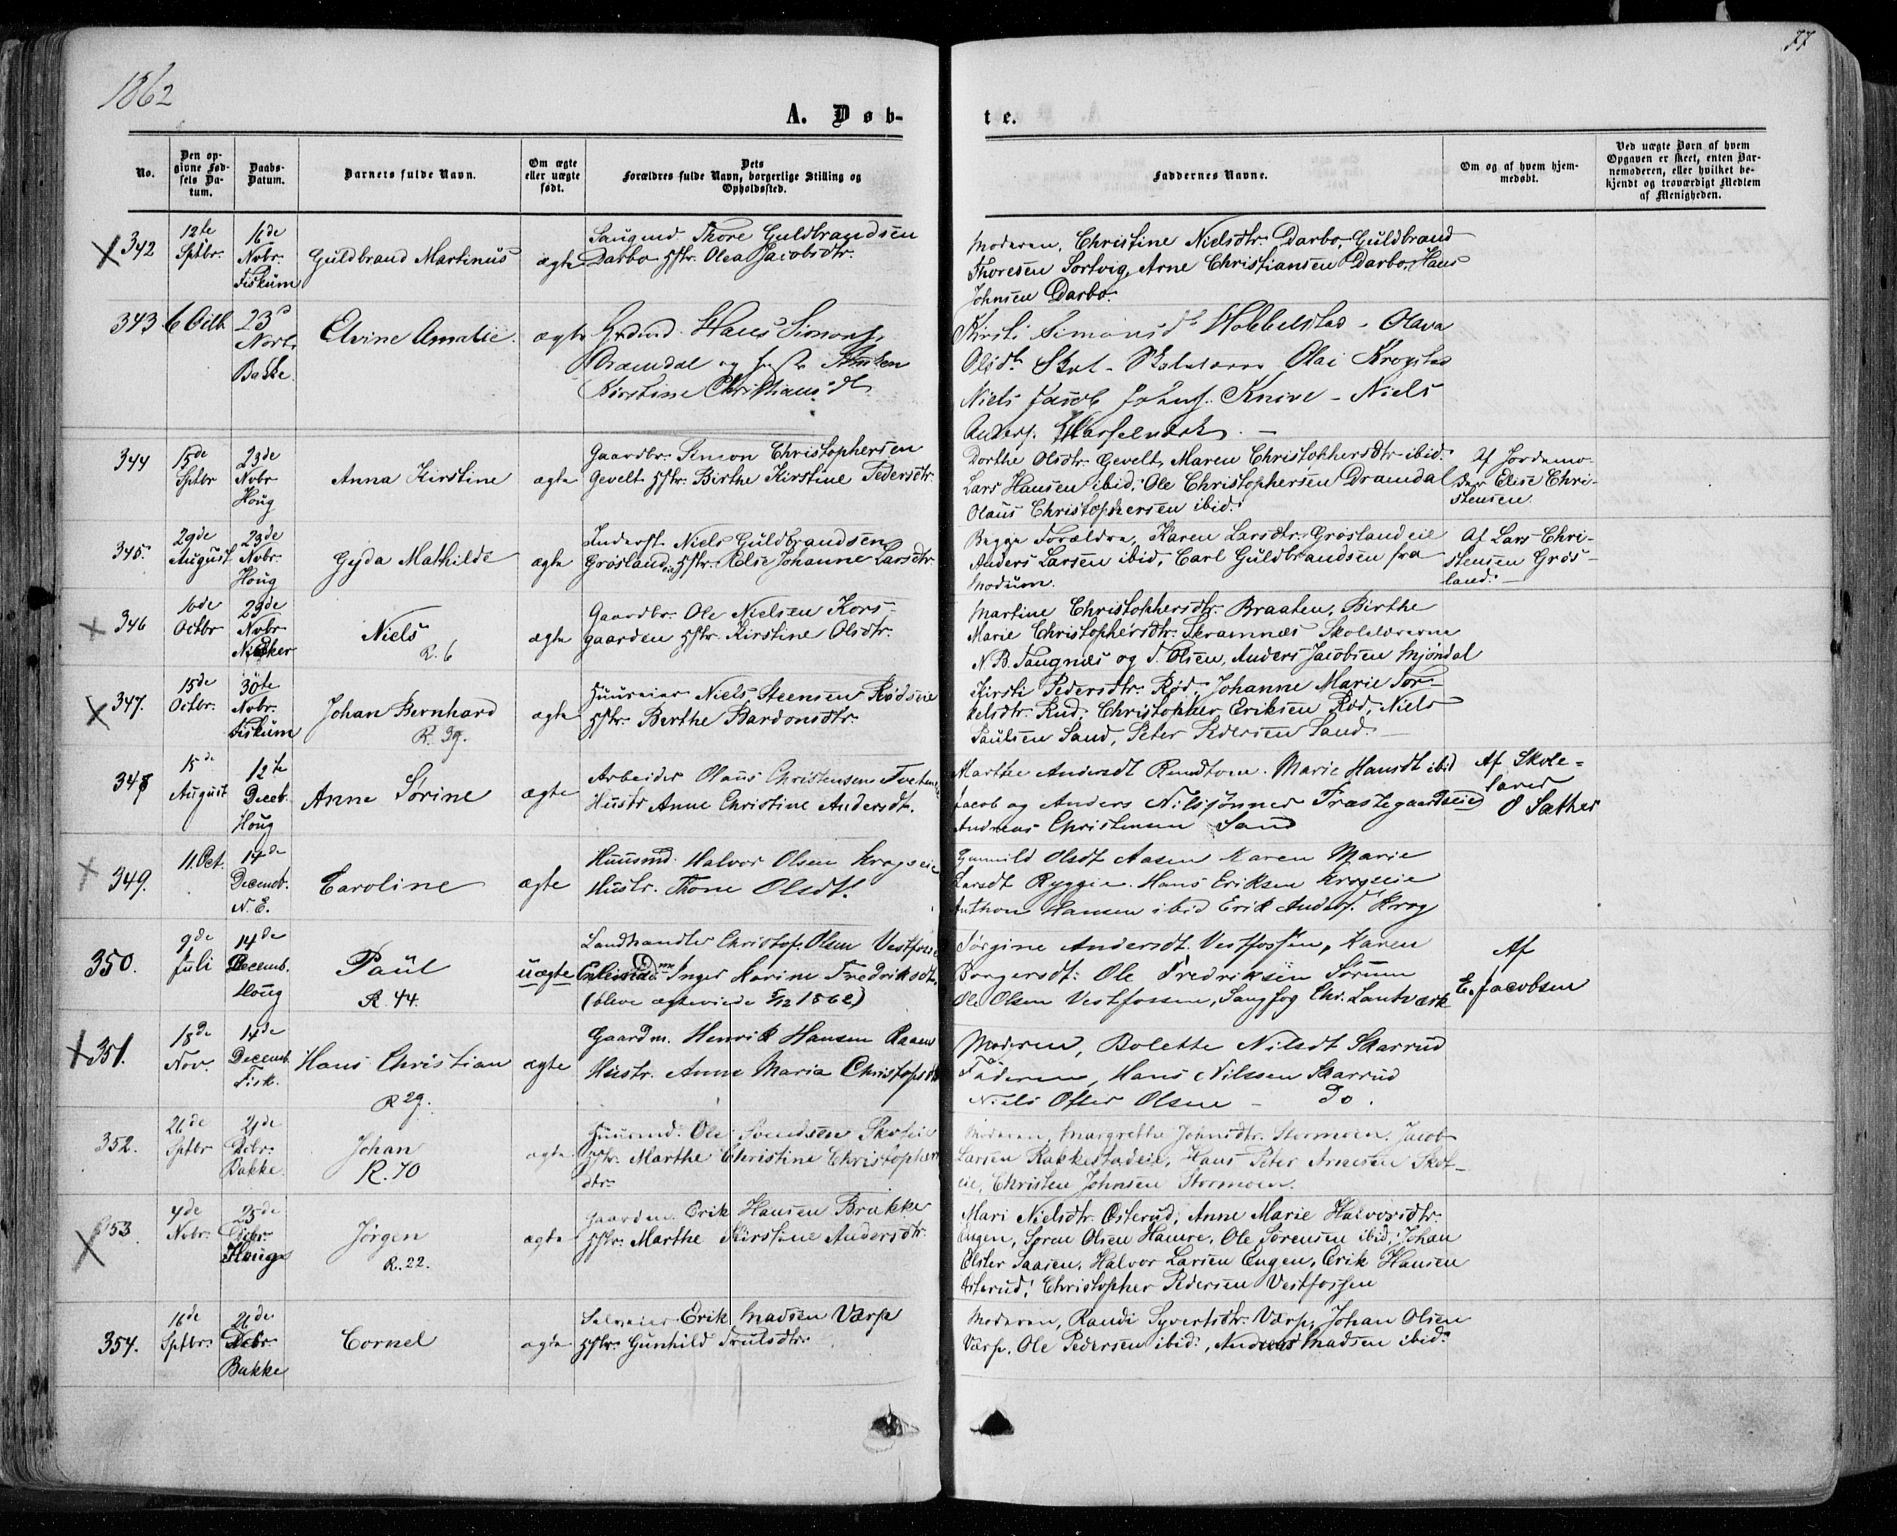 1862
77
A. Døb-
te.
No.
Den op-
givne Fød-
sels Da-
tum.
Daabs-
Datum.
Barnets fulde Navn.
Om ægte
eller uægte
født.
Dets
Forældres fulde Navn, borgerlige Stilling og
Opholdssted.
Faddernes Navne.
Om og af hvem hjem-
medøbt.
Ved uægte Børn af hvem
Opgaven er skeet, enten Bar-
nemoderen, eller hvilket be-
kjendt og troværdigt Medlem
af Menigheden.
342
12te
Sptbr.
16de
Nvbr.
Fiskum
Guldbrand Martinus
ægte
Saugmd Thore Guldbrandsen
Darbo Hstr. Olea Jacobsdtr.
Moderen, Christine Nielsdtr. Darbo, Guldbrand
Thoresen Sortvig, Arne Christiansen Darbo, Hans
Johnsen Darbo.
343
6 Octb
23d
Novb.
Bakke
Elvine Amalie.
ægte
Hans Simons.
Dramdal og
Kirstine Christiansdt.
Kirsti Simonsdt Hobbelstad - Olava
Olsdt Skot - Skolelærer Olai Krogstad
Niels Jacob Johns. Knive - Niels
Anders.
344
15de
Sptbr
23de
Nvbr
Houg
Anna Kirstine
ægte
Gaardbr. Simon Christophersen
Gevelt Hstr. Birthe Kirstine Pedersdtr.
Dorthe Olsdtr. Gevelt, Maren Christophersdtr ibid.
Lars Hansen ibid. Ole Christophersen Dramdal
Olaus Christophersen ibid.
Af Jordemo-
der Elise Chri-
stensen
345.
29de
August
23de
Nvbr.
Houg
Gyda Mathilde
ægte
Inderst Niels Guldbrandsen
Grøsland Hstr. Else Johanne Larsdtr.
Begge Forældre, Karen Larsdtr. Grøslandeie
Anders Larsen ibid, Carl Guldbrandsen fra
Modum.
Af Lars Chri-
stensen Grøs-
land.
346
10de
Octbr
29de
Nvbr.
Niels
R. 6
ægte
Gaardbr. Ole Nielsen Kors-
gaarden Hstr. Kirstine Olsdtr.
Martine Christophersdtr. Braaten, Birthe
Marie Christophersdtr. Skramnæs Skolelærerne
N. B. Taugnæs og T. Olsen, Anders Jacobsen Mjøndal
347.
15de
Octbr.
30te
Nvbr.
Fiskum
Johan Bernhard
R. 39.
ægte
Huuseier Niels Steensen Rødseie
Hstr. Berthe Bardonsdtr.
Kirsti Pedersdtr. Rød, Johanne Marie Tor-
kelsdtr. Rud, Christopher Eriksen Rød, Niels
Paulsen Sand, Peter Pedersen Sand.
348
15de
August
12te
Deceb.
Houg
Anne Sørine
ægte
Arbeider Olaus Christensen
Hustr Anne Christine Andersdt.
Marthe Andersdt Rundtom. Marie Hansdt ibid
Jacob og Anders Nilssønner Præstegaardseie
Andreas Christensen Sand
Af Skole-
lærer
O Sæther
349.
11. Oct.
14de
Decemb.
N. E.
Caroline
ægte
Huusmd. Halvor Olsen Krogseie
Hustr. Thone Olsdt.
Gunnild Olsdt Aasen Karen Marie
Larsdt Ryggie. Hans Eriksen Krogseie
Anthon Hansen ibid Erik Anders. Krog
350.
9de
Juli
14de
Decemb.
Houg
Paul
R. 44.
uægte
Landhandler Christof. Olsen Vestfossen
Inger Karine Fredriksdt.
(bleve ægteviede 5/12 1862)
Sørgine Andersdt. Vestfossen, Karen
Borgersdt: Ole Fredriksen Sørum
Ole Olsen Vestfossen, Chr. Lantværk
Af
E. Jacobsen
351.
18de
Nov.
14de
Decemb.
Fisk.
Hans Christian
R 29.
ægte
Gaardm. Henrik Hansen Raaen
Hustr. Anne Maria Christofsdt
Moderen, Bolette Nilsdt Skarrud
Faderen, Hans Nilssen Skarrud
Niels Ofter Olsen - Do.
352.
26de
Sptbr
21de
Dcbr.
Bakke
Johan
R. 70
ægte
Huusmd. Ole Svendsen
Hstr. Marthe Christine Christophers
dtr.
Moderen, Margrethe Johnsdtr. Stormoen, Jacob
Larsen Bakkestadeie, Hans Peter Arnesen Skot-
eie, Christen Johnsen Stormoen.
353.
4de
Nvbr.
25de
Dcbr.
Houg
Jørgen
R. 22.
ægte
Gaardm. Erik Hansen Brække
Hstr. Marthe Kirstine Andersdtr.
Mari Nielsdtr. Østerud, Anne Marie Halvorsdtr.
Engen, Søren Olsen Hamre, Ole Sørensen ibid, Johan
Elster Saasen, Halvor Larsen Engen, Erik Hansen
Østerud, Christopher Pedersen Vestfossen
354.
16de
Sptbr.
26de
Dcbr.
Bakke
Cornel
ægte
Selveier Erik Madsen Værp
Hstr. Gunhild Trulsdtr.
Moderen, Randi Syvertsdtr. Værp, Johan Olsen
Værp, Ole Pedersen ibid:, Andreas Madsen ibid: